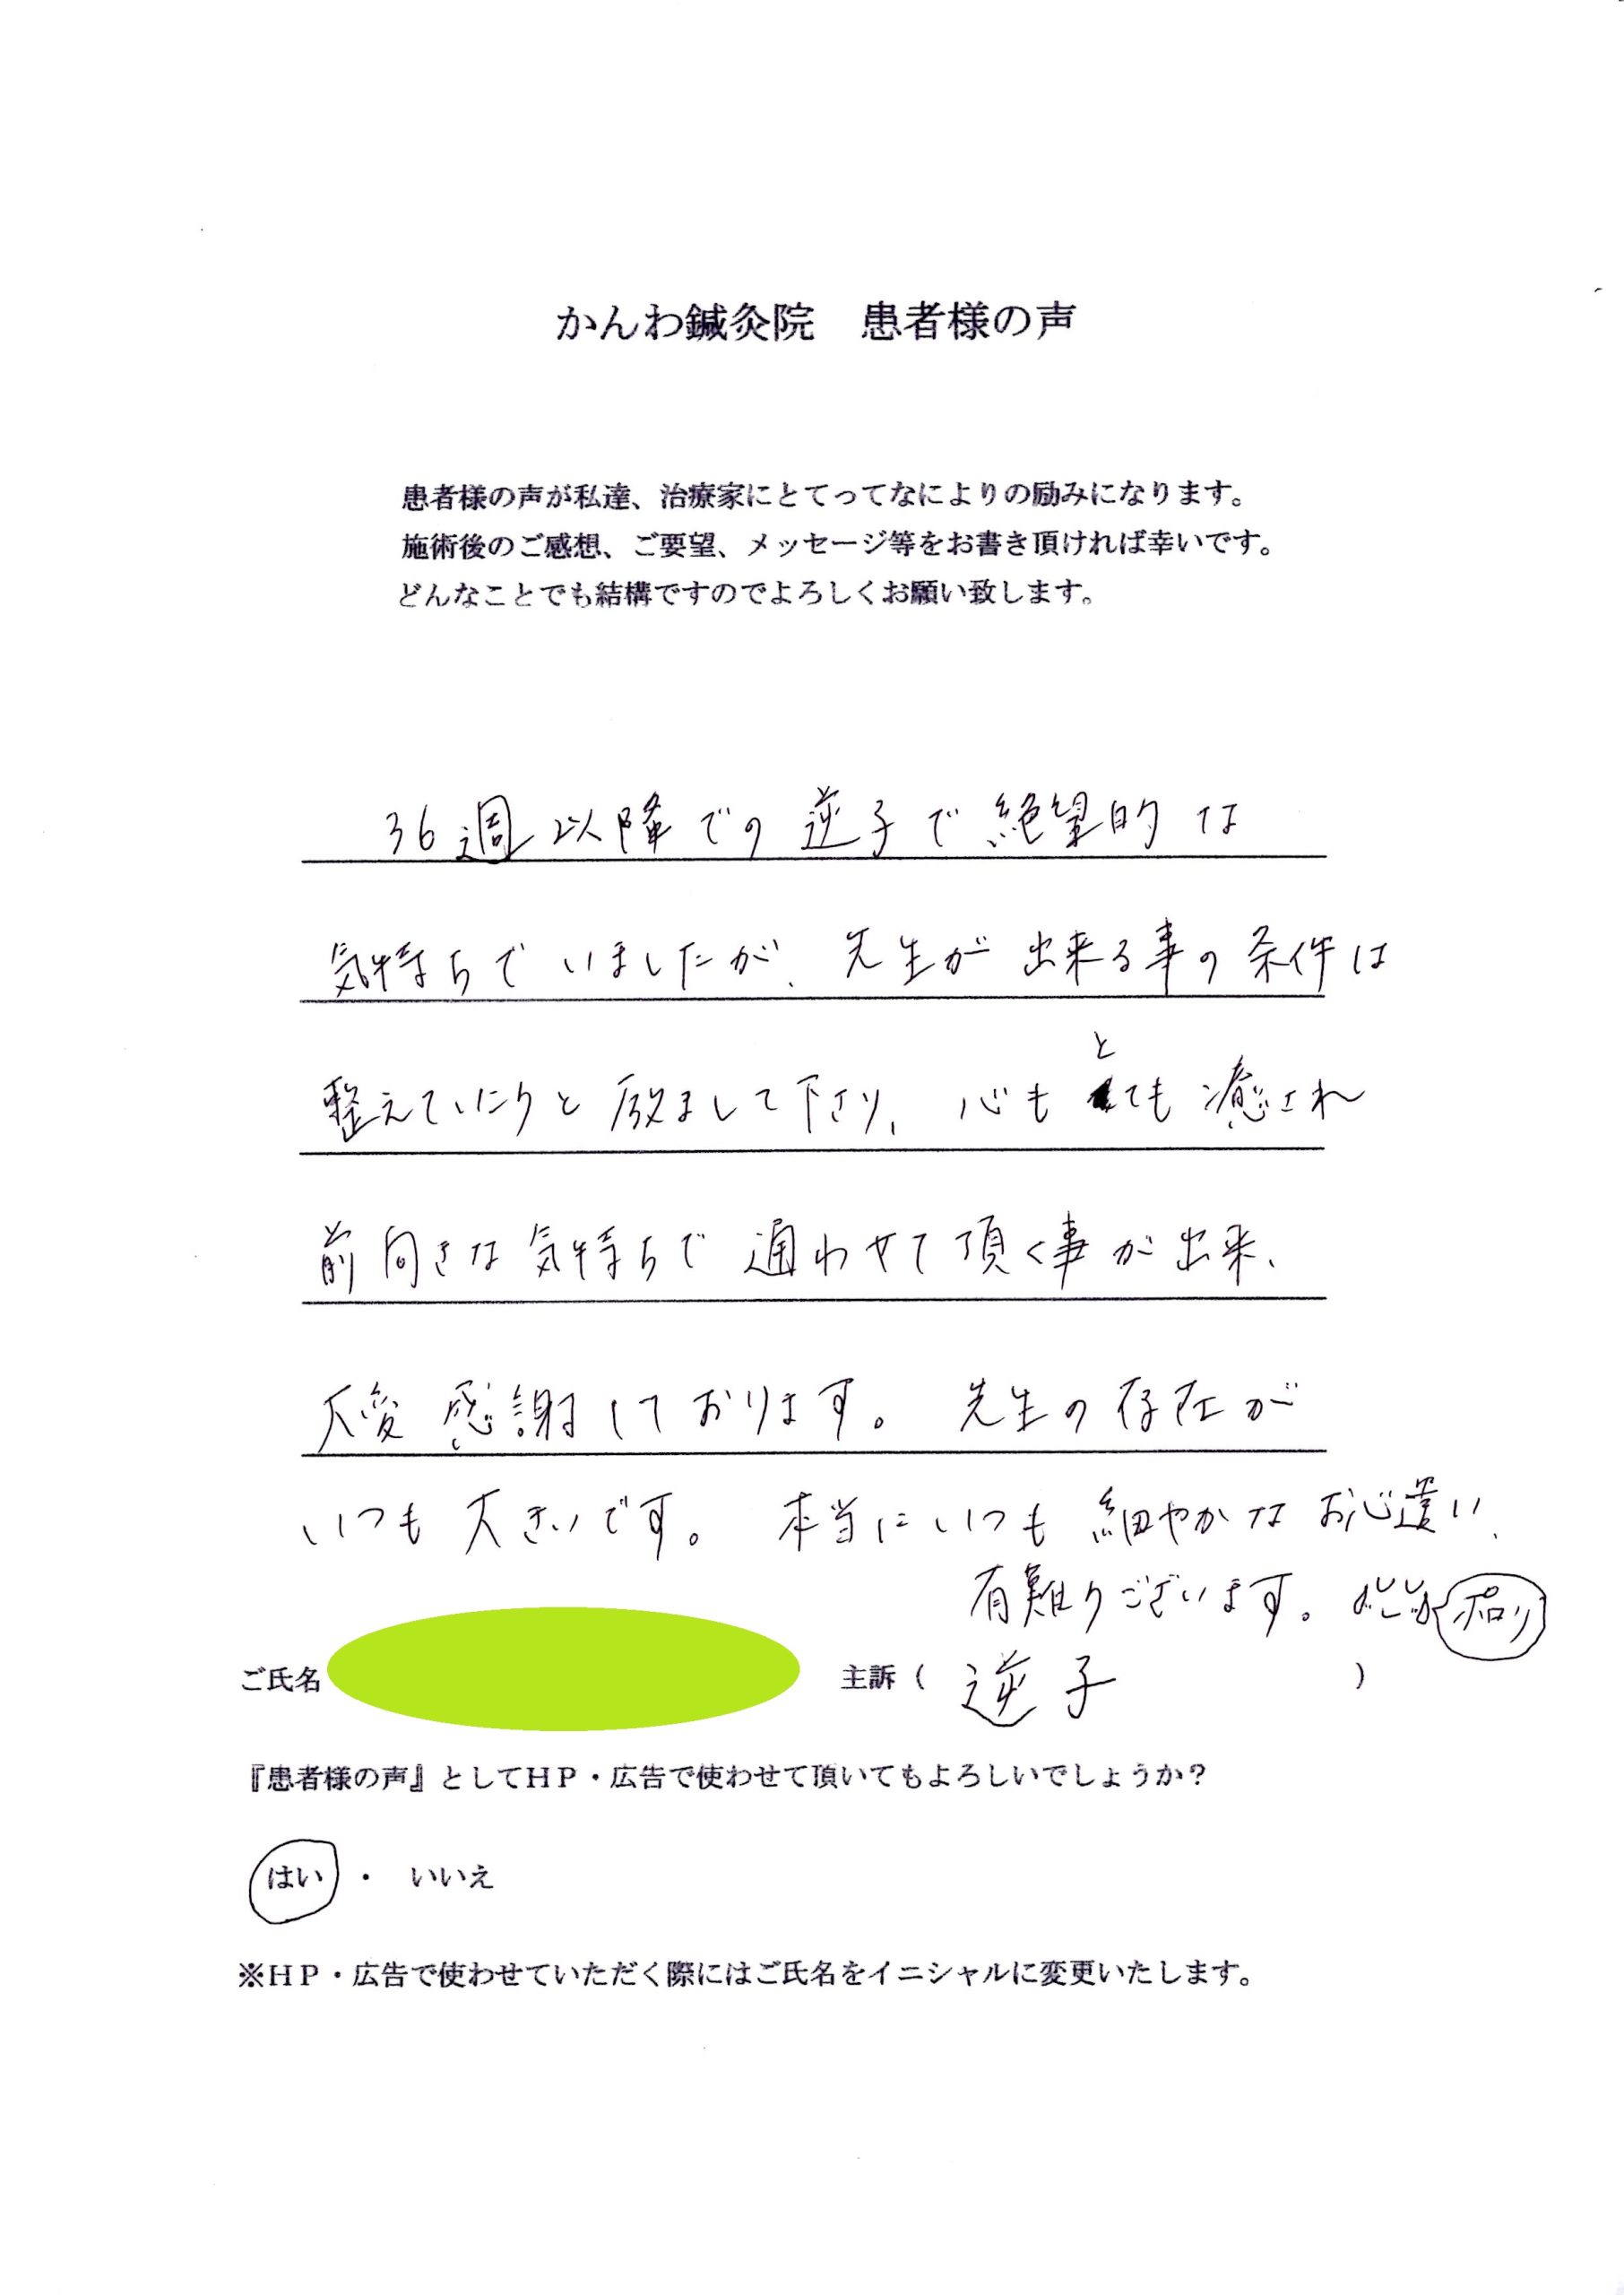 かんわ鍼灸院　患者様の声
患者様の声が私達、治療家にとてってなによりの励みになります。
施術後のご感想、ご要望、メッセージ等をお書き頂ければ幸いです。
どんなことでも結構ですのでよろしくお願い致します。
36週以降での逆子で絶望的な
気持ちでいましたが、先生が出来る事の条件は
整えていこうと励まして下さり、心もとても癒され
前向きな気持ちで通わせて頂く事が出来、
大変感謝しております。先生の存在が
いつも大きいです。本当にいつも細やかなお心遣い、
有難うございます。
ポロリ
ご氏名　主訴（逆子）
『患者様の声』としてＨＰ・広告で使わせて頂いてもよろしいでしょうか？
はい・いいえ
※ＨＰ・広告で使わせていただく際にはご氏名をイニシャルに変更いたします。